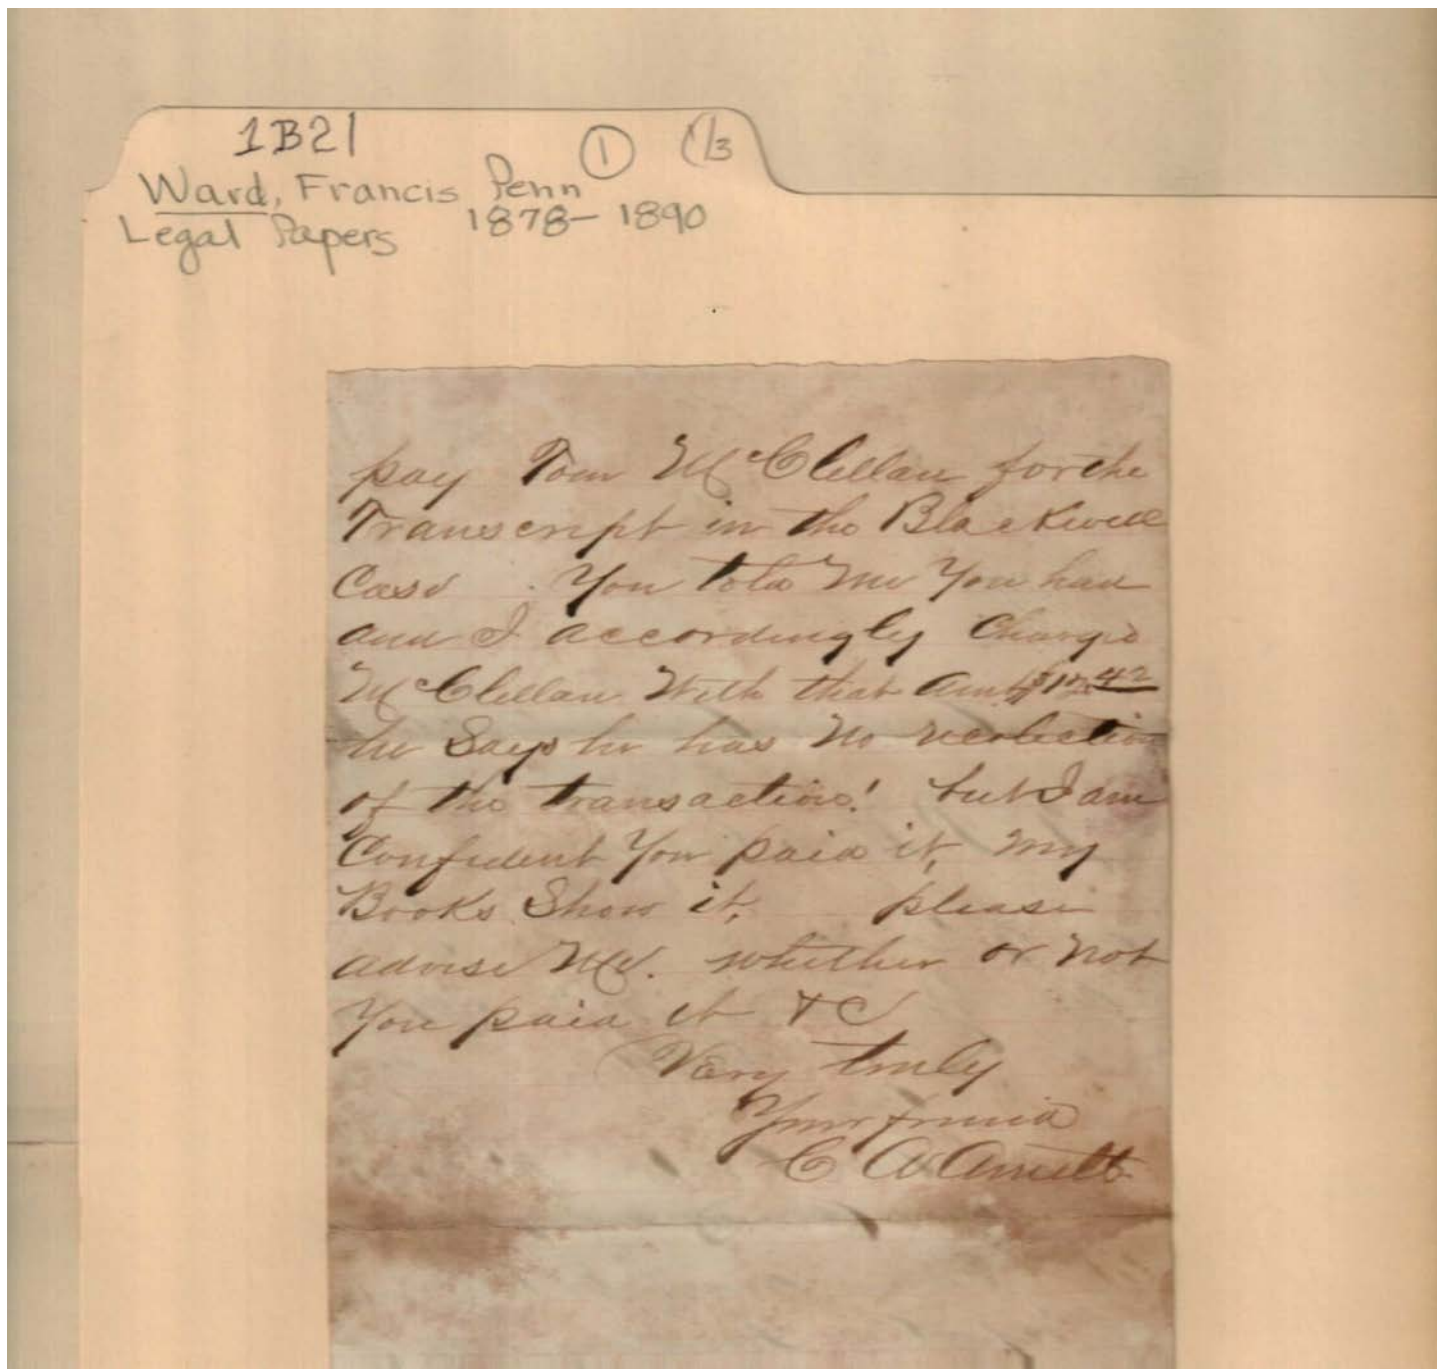 1B21
① 1/3
Ward, Francis Penn
Legal Papers 1878-1890
pay Tom McClellan for the
Transcript in the Blackwell
Case . You told me You had
and I accordingly Charged
McClellan With that Amt
he Says he has No recolection
of the transaction! but I am
Confident You paid it, My
Books Show it, please
advise Me. whether or Not
You paid it &C
Very truly
Your friend
C Arnett